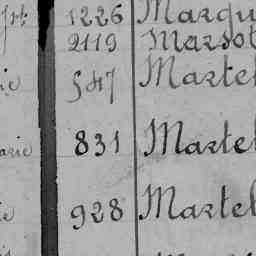 1226 Marqu
2119 Marsot
ie 547 Martel
arie 831 Martel
ie 928 Martel